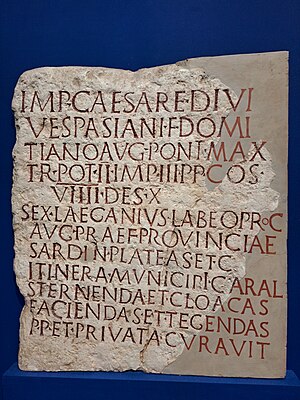 IMP·CAESARE·DIVI
VESPASIANI·F·DOMI
TIANO·AVG·PONT·MAX
TR·POT·II·IMP·III·PP·COS
VIIII·DES·X
SEX·LAECANIVS·LABEO·PR·C
AVG·PRAEF·PROVINCIAE
SARDIN·PLATEAS·ETC
ITINERA·MVNICIPI·CARAL
STERNENDA·ET·CLOACAS
FACIENDAS·ET·TEGENDAS
P·P·ET·PRIVATA·CVRAVIT